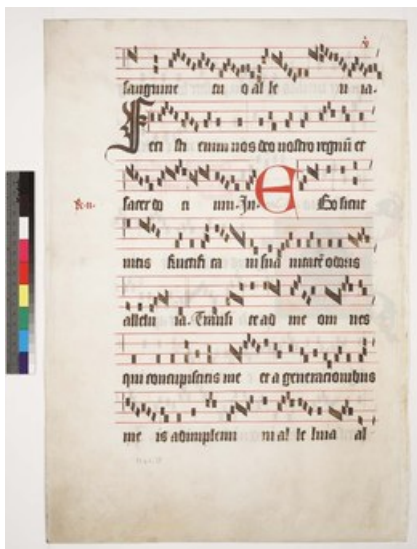 sanguine tu o al le u ia.
Feci sti enim nos deo nostro regnū et
sacer do ti um. In E Go sicut
uitis fructifi ca ui sua uitatē odoris
allelu ia. Transi te ad me om nes
qui concupiscitis me et a generacionibus
me is adimplemi ni al le luia al